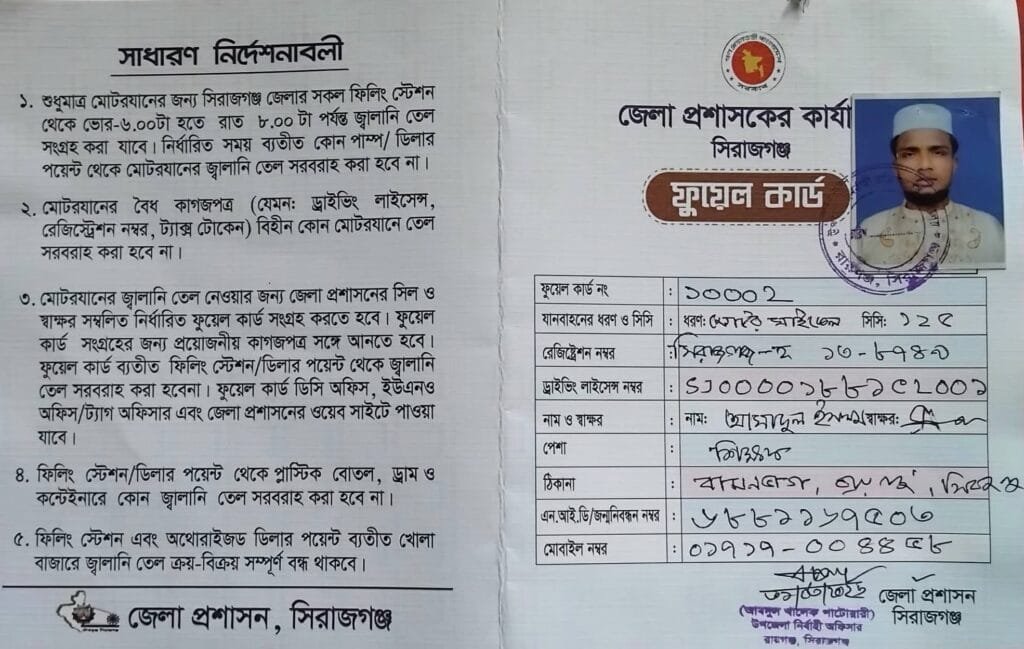 সাধারণ নির্দেশনাবলী
১. শুধুমাত্র মোটরযানের জন্য সিরাজগঞ্জ জেলার সকল ফিলিং স্টেশন
থেকে ভোর-৬.০০টা হতে রাত ৮.০০ টা পর্যন্ত জ্বালানি তেল
সংগ্রহ করা যাবে। নির্ধারিত সময় ব্যতীত কোন পাম্প/ ডিলার
পয়েন্ট থেকে মোটরযানের জ্বালানি তেল সরবরাহ করা হবে না।
২. মোটরযানের বৈধ কাগজপত্র (যেমন: ড্রাইভিং লাইসেন্স,
রেজিস্ট্রেশন নম্বর, ট্যাক্স টোকেন) বিহীন কোন মোটরযানে তেল
সরবরাহ করা হবে না।
৩. মোটরযানের জ্বালানি তেল নেওয়ার জন্য জেলা প্রশাসনের সিল ও
স্বাক্ষর সম্বলিত নির্ধারিত ফুয়েল কার্ড সংগ্রহ করতে হবে। ফুয়েল
কার্ড সংগ্রহের জন্য প্রয়োজনীয় কাগজপত্র সঙ্গে আনতে হবে।
ফুয়েল কার্ড ব্যতীত ফিলিং স্টেশন/ডিলার পয়েন্ট থেকে জ্বালানি
তেল সরবরাহ করা হবেনা। ফুয়েল কার্ড ডিসি অফিস, ইউএনও
অফিস/ট্যাগ অফিসার এবং জেলা প্রশাসনের ওয়েব সাইটে পাওয়া
যাবে।
৪. ফিলিং স্টেশন/ডিলার পয়েন্ট থেকে প্লাস্টিক বোতল, ড্রাম ও
কন্টেইনারে কোন জ্বালানি তেল সরবরাহ করা হবে না।
৫. ফিলিং স্টেশন এবং অথোরাইজড ডিলার পয়েন্ট ব্যতীত খোলা
বাজারে জ্বালানি তেল ক্রয়-বিক্রয় সম্পূর্ণ বন্ধ থাকবে।
জেলা প্রশাসন, সিরাজগঞ্জ
জেলা প্রশাসকের কার্যা
সিরাজগঞ্জ
ফুয়েল কার্ড
ফুয়েল কার্ড নং : ১০০০২
যানবাহনের ধরণ ও সিসি : ধরণ: মোটর সাইকেল সিসি: ১২৫
রেজিষ্ট্রেশন নম্বর : সিরাজগঞ্জ-হ ১৩-৮৭৪৯
ড্রাইভিং লাইসেন্স নম্বর : SJ00001881CL001
নাম ও স্বাক্ষর : নাম: আসাদুল ইসলাম স্বাক্ষর:
পেশা : শিক্ষক
ঠিকানা :
এন.আই.ডি/জন্মনিবন্ধন নম্বর : ৬৮৮১১৬৭৫০৩
মোবাইল নম্বর : ০১৭১৭-০০৪৪৫৮
জেলা প্রশাসন
সিরাজগঞ্জ
উপজেলা নির্বাহী অফিসার
রায়গঞ্জ, সিরাজগঞ্জ